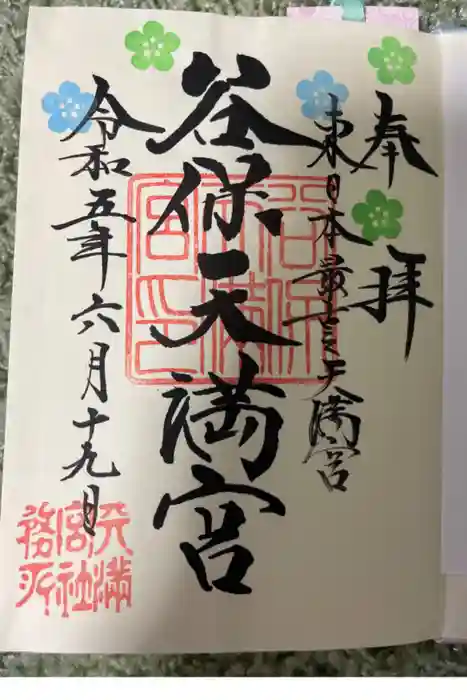 奉拝
東日本最古天満宮
谷保天満宮
令和五年六月十九日
谷保天満宮印
天満宮社務所